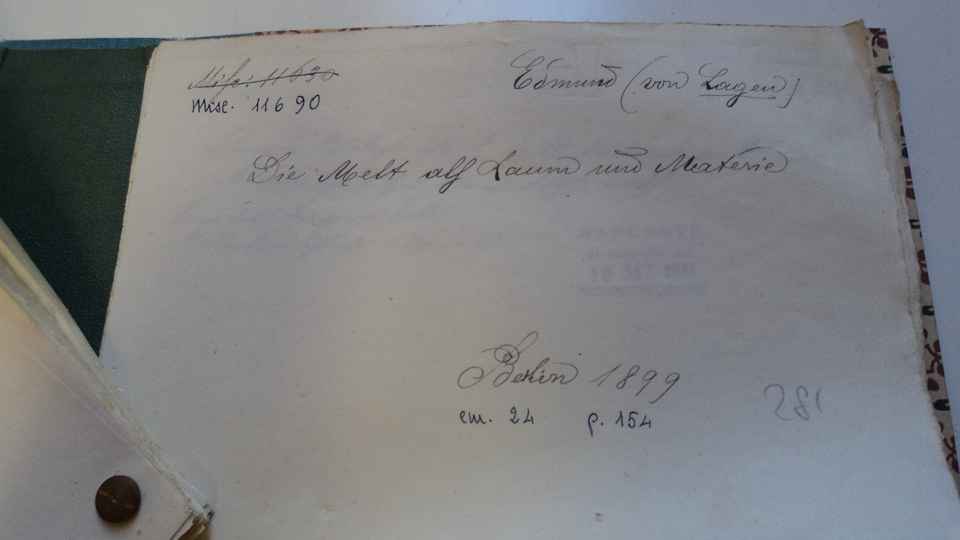 Misc. 11690
Misc. 11690
Edmund (von Lagen)
Die Welt als Raum und Materie
Berlin 1899
cm. 24 p. 154
281